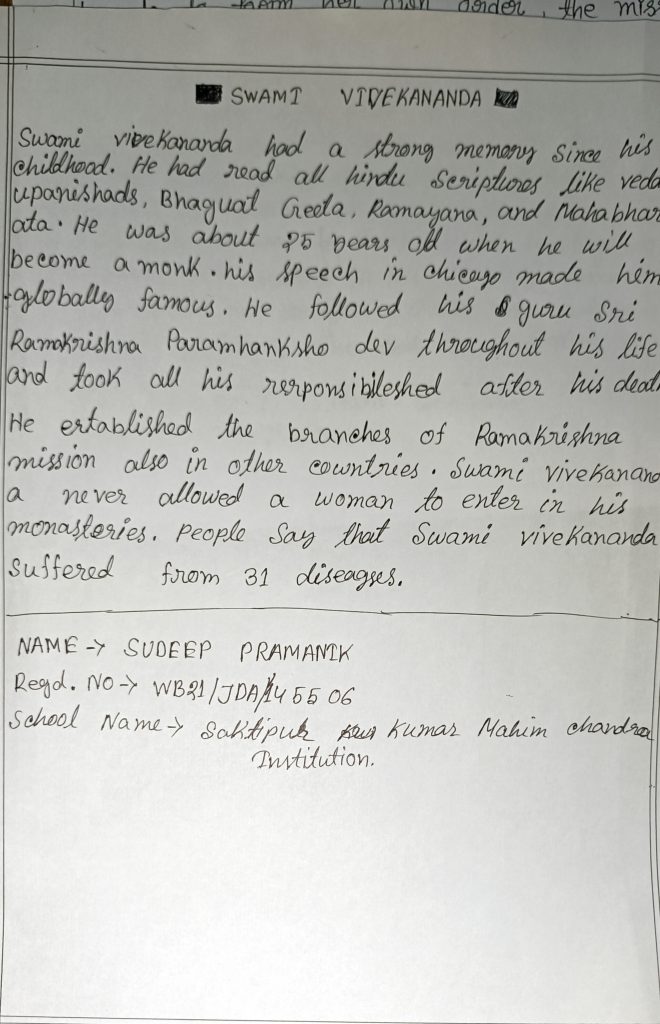 them her own order, the miss
SWAMI VIVEKANANDA
Swami vivekananda had a strong memory since his
childhood. He had read all hindu scriptures like veda
upanishads, Bhaguat Geeta, Ramayana, and Mahabhar
ata. He was about 25 years old when he will
become a monk. his speech in chicago made him
globally famous. He followed his guru Sri
Ramakrishna Paramhanksho dev throughout his life
and took all his rerponsibileshed after his death
He ertablished the branches of Ramakrishna
mission also in other countries. Swami vivekanand
a never allowed a woman to enter in his
monasteries. People say that Swami vivekananda
suffered from 31 diseagses.
NAME → SUDEEP PRAMANIK
Regd. NO → WB21/JDA/145506
School Name → Saktipur Kumar Mahim chandra
Institution.